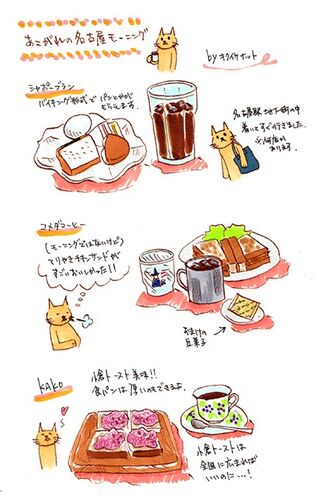 あこがれの名古屋モーニング
by キクイケナット
シャポーブラン
バイキング形式でパンとかが
もらえます。
名古屋駅地下街の中
着いてすぐ行きました。
※何店か
あります。
コメダコーヒー
(モーニングではないけど)
てりやきチキンサンドが
すごいおいしかった!!
おまけの
豆菓子
KAKO
小倉トースト美味!!
食パンは厚いのもできるよ。
小倉トーストは
全国に広まれば
いいのに…!